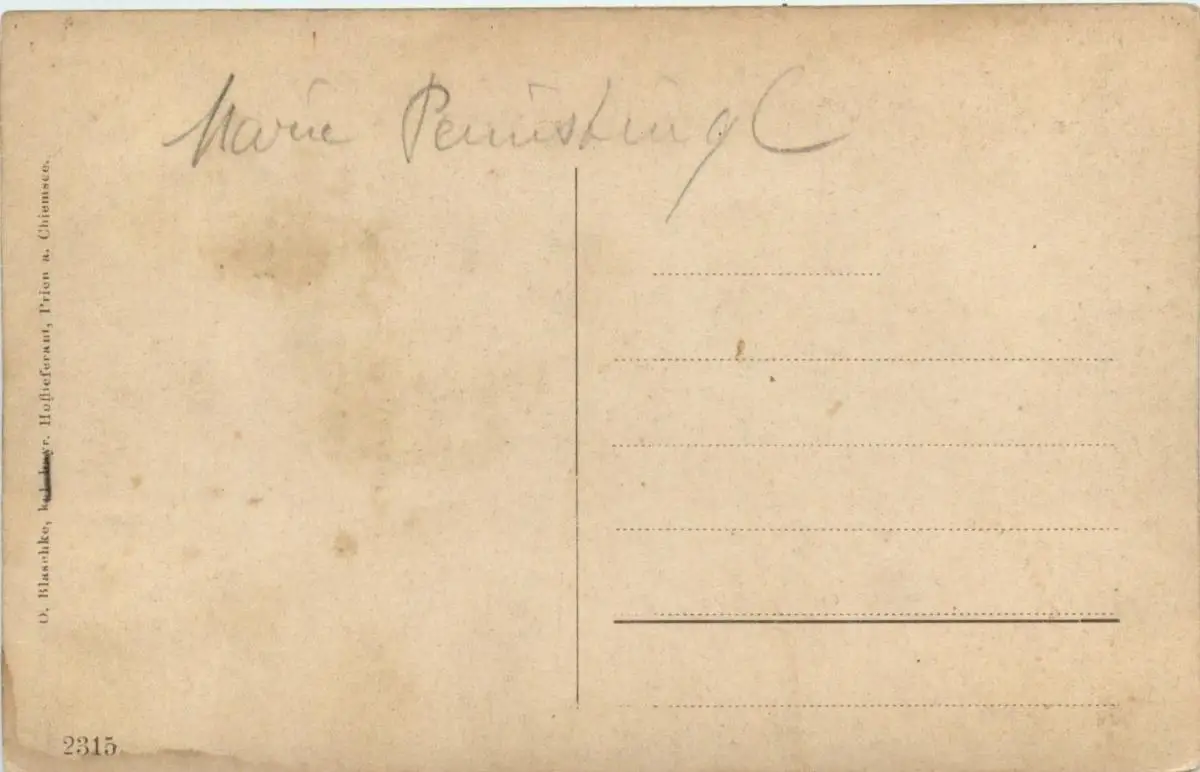 Marie Pennistingl
O. Blaschke, kgl. bayr. Hoflieferant, Prien a. Chiemsee.
2315